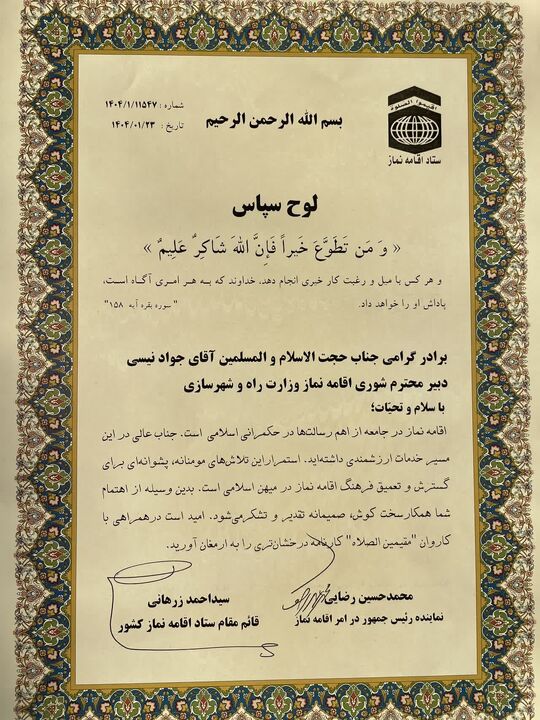 اقیموا الصلوة
ستاد اقامه نماز
شماره : ۱۴۰۴/۱/۱۱۵۴۷
تاریخ : ۱۴۰۴/۰۱/۲۳
بسم الله الرحمن الرحیم
لوح سپاس
« وَ مَن تَطَوَّعَ خَیراً فَإِنَّ اللهَ شَاکِرٌ عَلِیمٌ »
و هر کس با میل و رغبت کار خیری انجام دهد، خداوند که به هر امری آگاه است،
پاداش او را خواهد داد. "سوره بقره آیه ۱۵۸"
برادر گرامی جناب حجت الاسلام و المسلمین آقای جواد نیسی
دبیر محترم شوری اقامه نماز وزارت راه و شهرسازی
با سلام و تحیّات؛
اقامه نماز در جامعه از اهم رسالت‌ها در حکمرانی اسلامی است. جناب عالی در این
مسیر خدمات ارزشمندی داشته‌اید. استمرار این تلاش‌های مومنانه، پشوانه‌ای برای
گسترش و تعمیق فرهنگ اقامه نماز در میهن اسلامی است. بدین وسیله از اهتمام
شما همکار سخت کوش، صمیمانه تقدیر و تشکر می‌شود. امید است در همراهی با
کاروان "مقیمین الصلاه" کارنامه درخشان‌تری را به ارمغان آورید.
محمدحسین رضایی
نماینده رئیس جمهور در امر اقامه نماز
سیداحمد زرهانی
قائم مقام ستاد اقامه نماز کشور